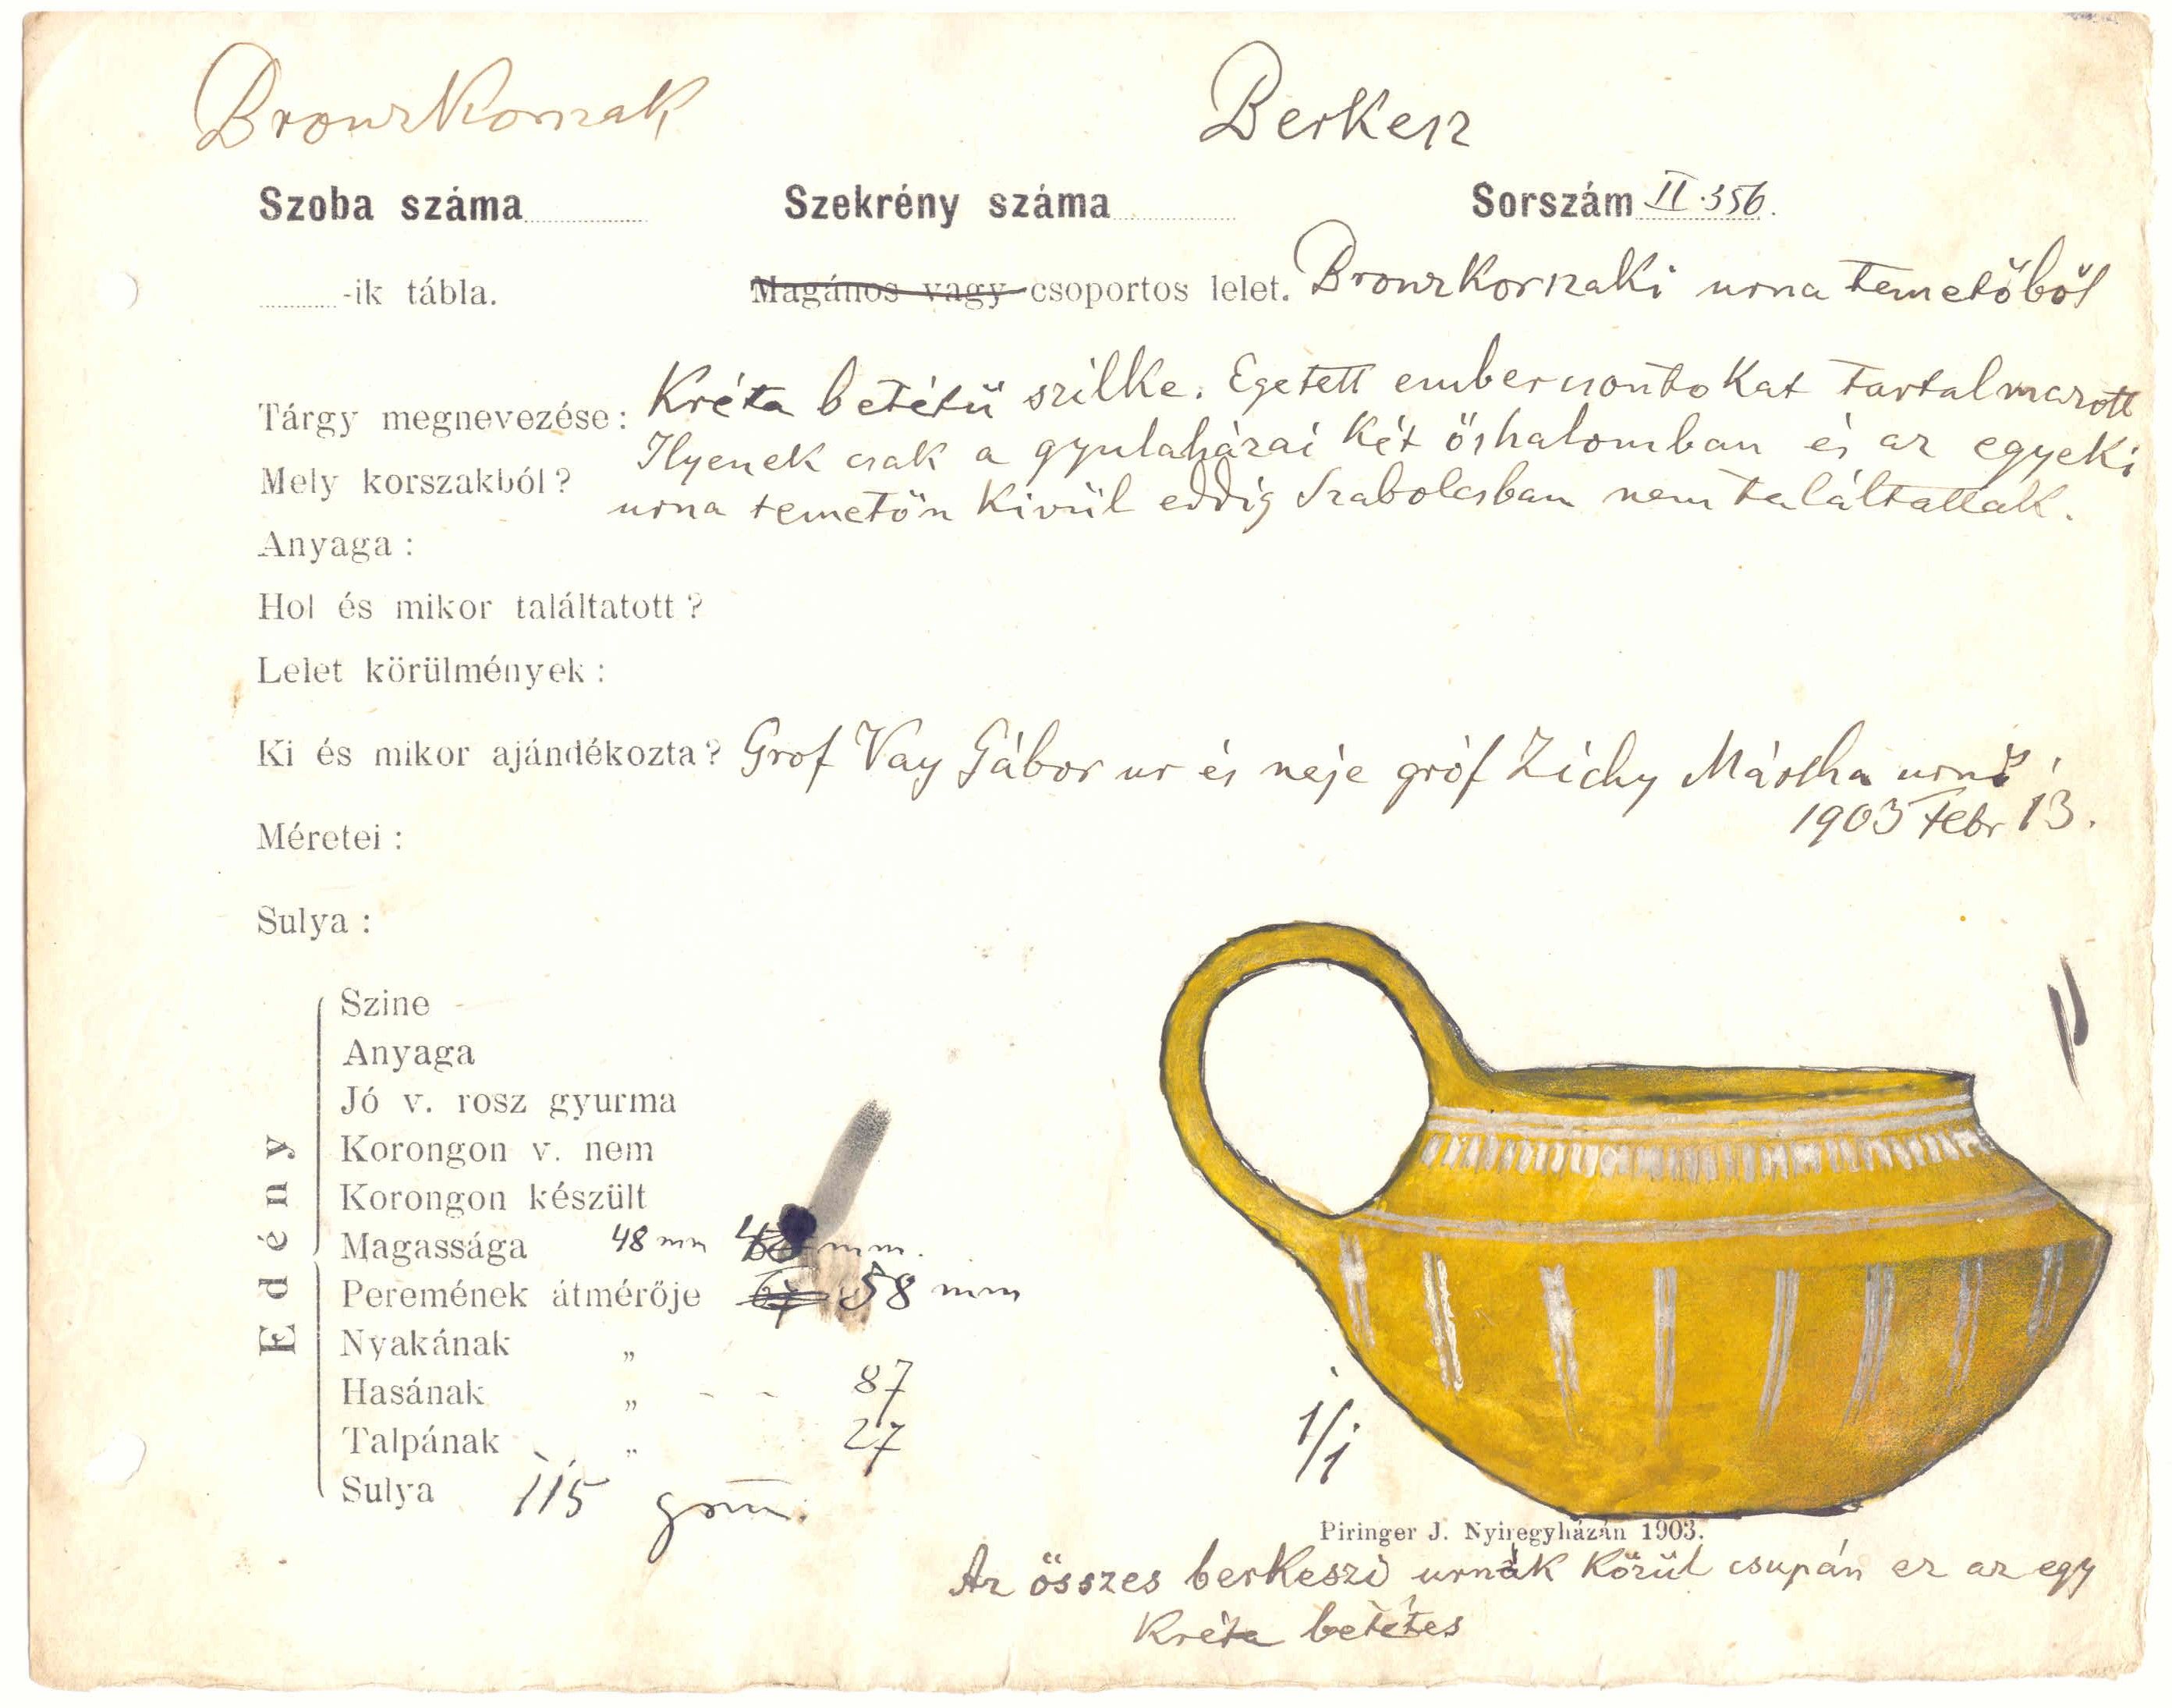 Bronzkorszak Berkesz
Szoba száma Szekrény száma Sorszám II.356.
-ik tábla. Magános vagy csoportos lelet. Bronzkorszaki urna temetőből
Tárgy megnevezése: Kréta betétű szilke. Egetett embercsontokat tartalmazott
Ilyenek csak a gyulaházai két őshalomban és az egyeki
Mely korszakból?
urna temetőn kivül eddig Szabolcsban nem találtattak.
Anyaga:
Hol és mikor találtatott?
Lelet körülmények:
Ki és mikor ajándékozta? Grof Vay Gábor ur és neje gróf Zichy Mártha urnő
1903 Febr 13.
Méretei:
Sulya:
Edény
Szine
Anyaga
Jó v. rosz gyurma
Korongon v. nem
Korongon készült
Magassága 48 mm 48 mm.
Peremének átmérője 58 mm
Nyakának „
Hasának „ - - 87
Talpának „ 27
Sulya 115 grm.
1/1
Piringer J. Nyiregyházán 1903.
Az összes berkeszi urnák körül csupán ez az egy
Kréta betétes